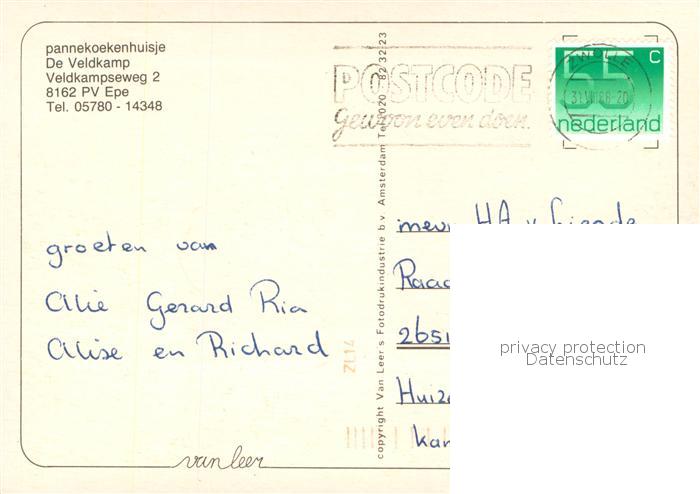 pannekoekenhuisje
De Veldkamp
Veldkampseweg 2
8162 PV Epe
Tel. 05780 - 14348
POSTCODE
Gewoon even doen.
55 C
nederland
copyright Van Leer s Fotodrukindustrie b.v. Amsterdam Tel. 020 - 82 32 23
groeten van
Alie Gerard Ria
Alise en Richard
mevr HA v
Raad
2651
Huize
kam
ZL14
van leer
privacy protection
Datenschutz